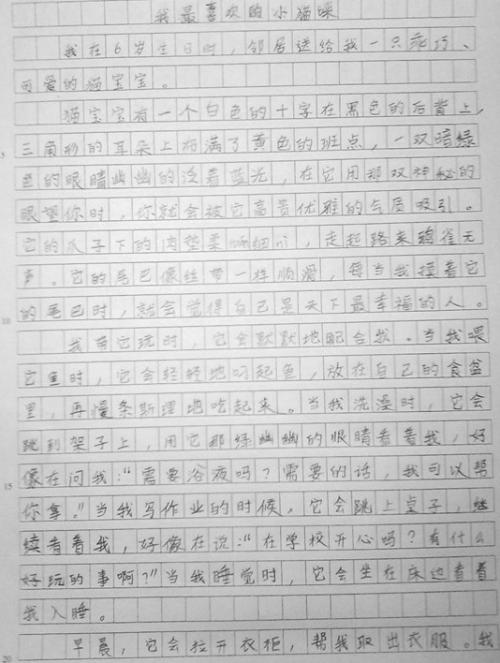 我最喜欢的小猫咪
我在6岁生日时，邻居送给我一只乖巧、
可爱的猫宝宝。
猫宝宝有一个白色的十字在黑色的后背上，
5 三角形的耳朵上布满了黄色的斑点，一双暗绿
色的眼睛幽幽的泛着蓝光，在它用那双神秘的
眼望你时，你就会被它高贵优雅的气质吸引。
它的爪子下的肉垫柔嫩细小，走起路来鸦雀无
声。它的尾巴像丝带一样顺滑，每当我摸着它
10 的尾巴时，就会觉得自己是天下最幸福的人。
我带它玩时，它会默默地配合我。当我喂
它鱼时，它会轻轻地叼起鱼，放在自己的食盆
里，再慢条斯理地吃起来。当我洗澡时，它会
跳到架子上，用它那绿幽幽的眼睛看着我，好
15 像在问我：“需要浴液吗？需要的话，我可以帮
你拿。”当我写作业的时候，它会跳上桌子，继
续看着我，好像在说：“在学校开心吗？有什么
好玩的事啊？”当我睡觉时，它会坐在床边看着
我入睡。
20 早晨，它会拉开衣柜，帮我取出衣服。我